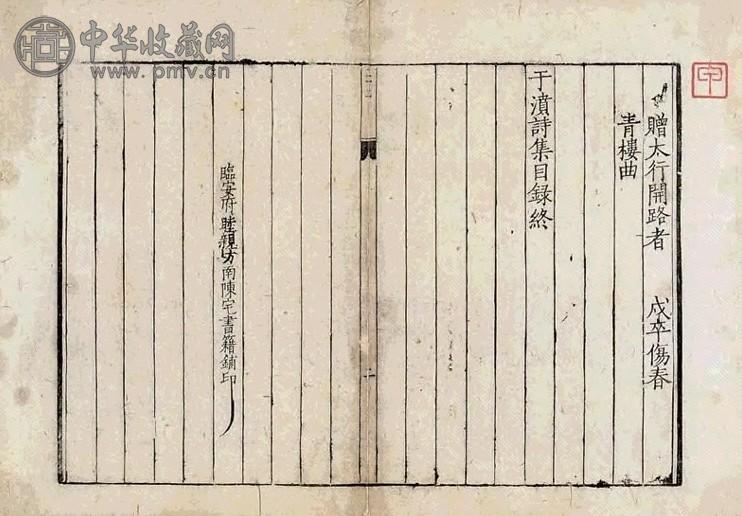 贈太行開路者 戍卒傷春
青樓曲
于濆詩集目録終
臨安府睦親坊南陳宅書籍鋪印
中华收藏网
www.pmv.cn